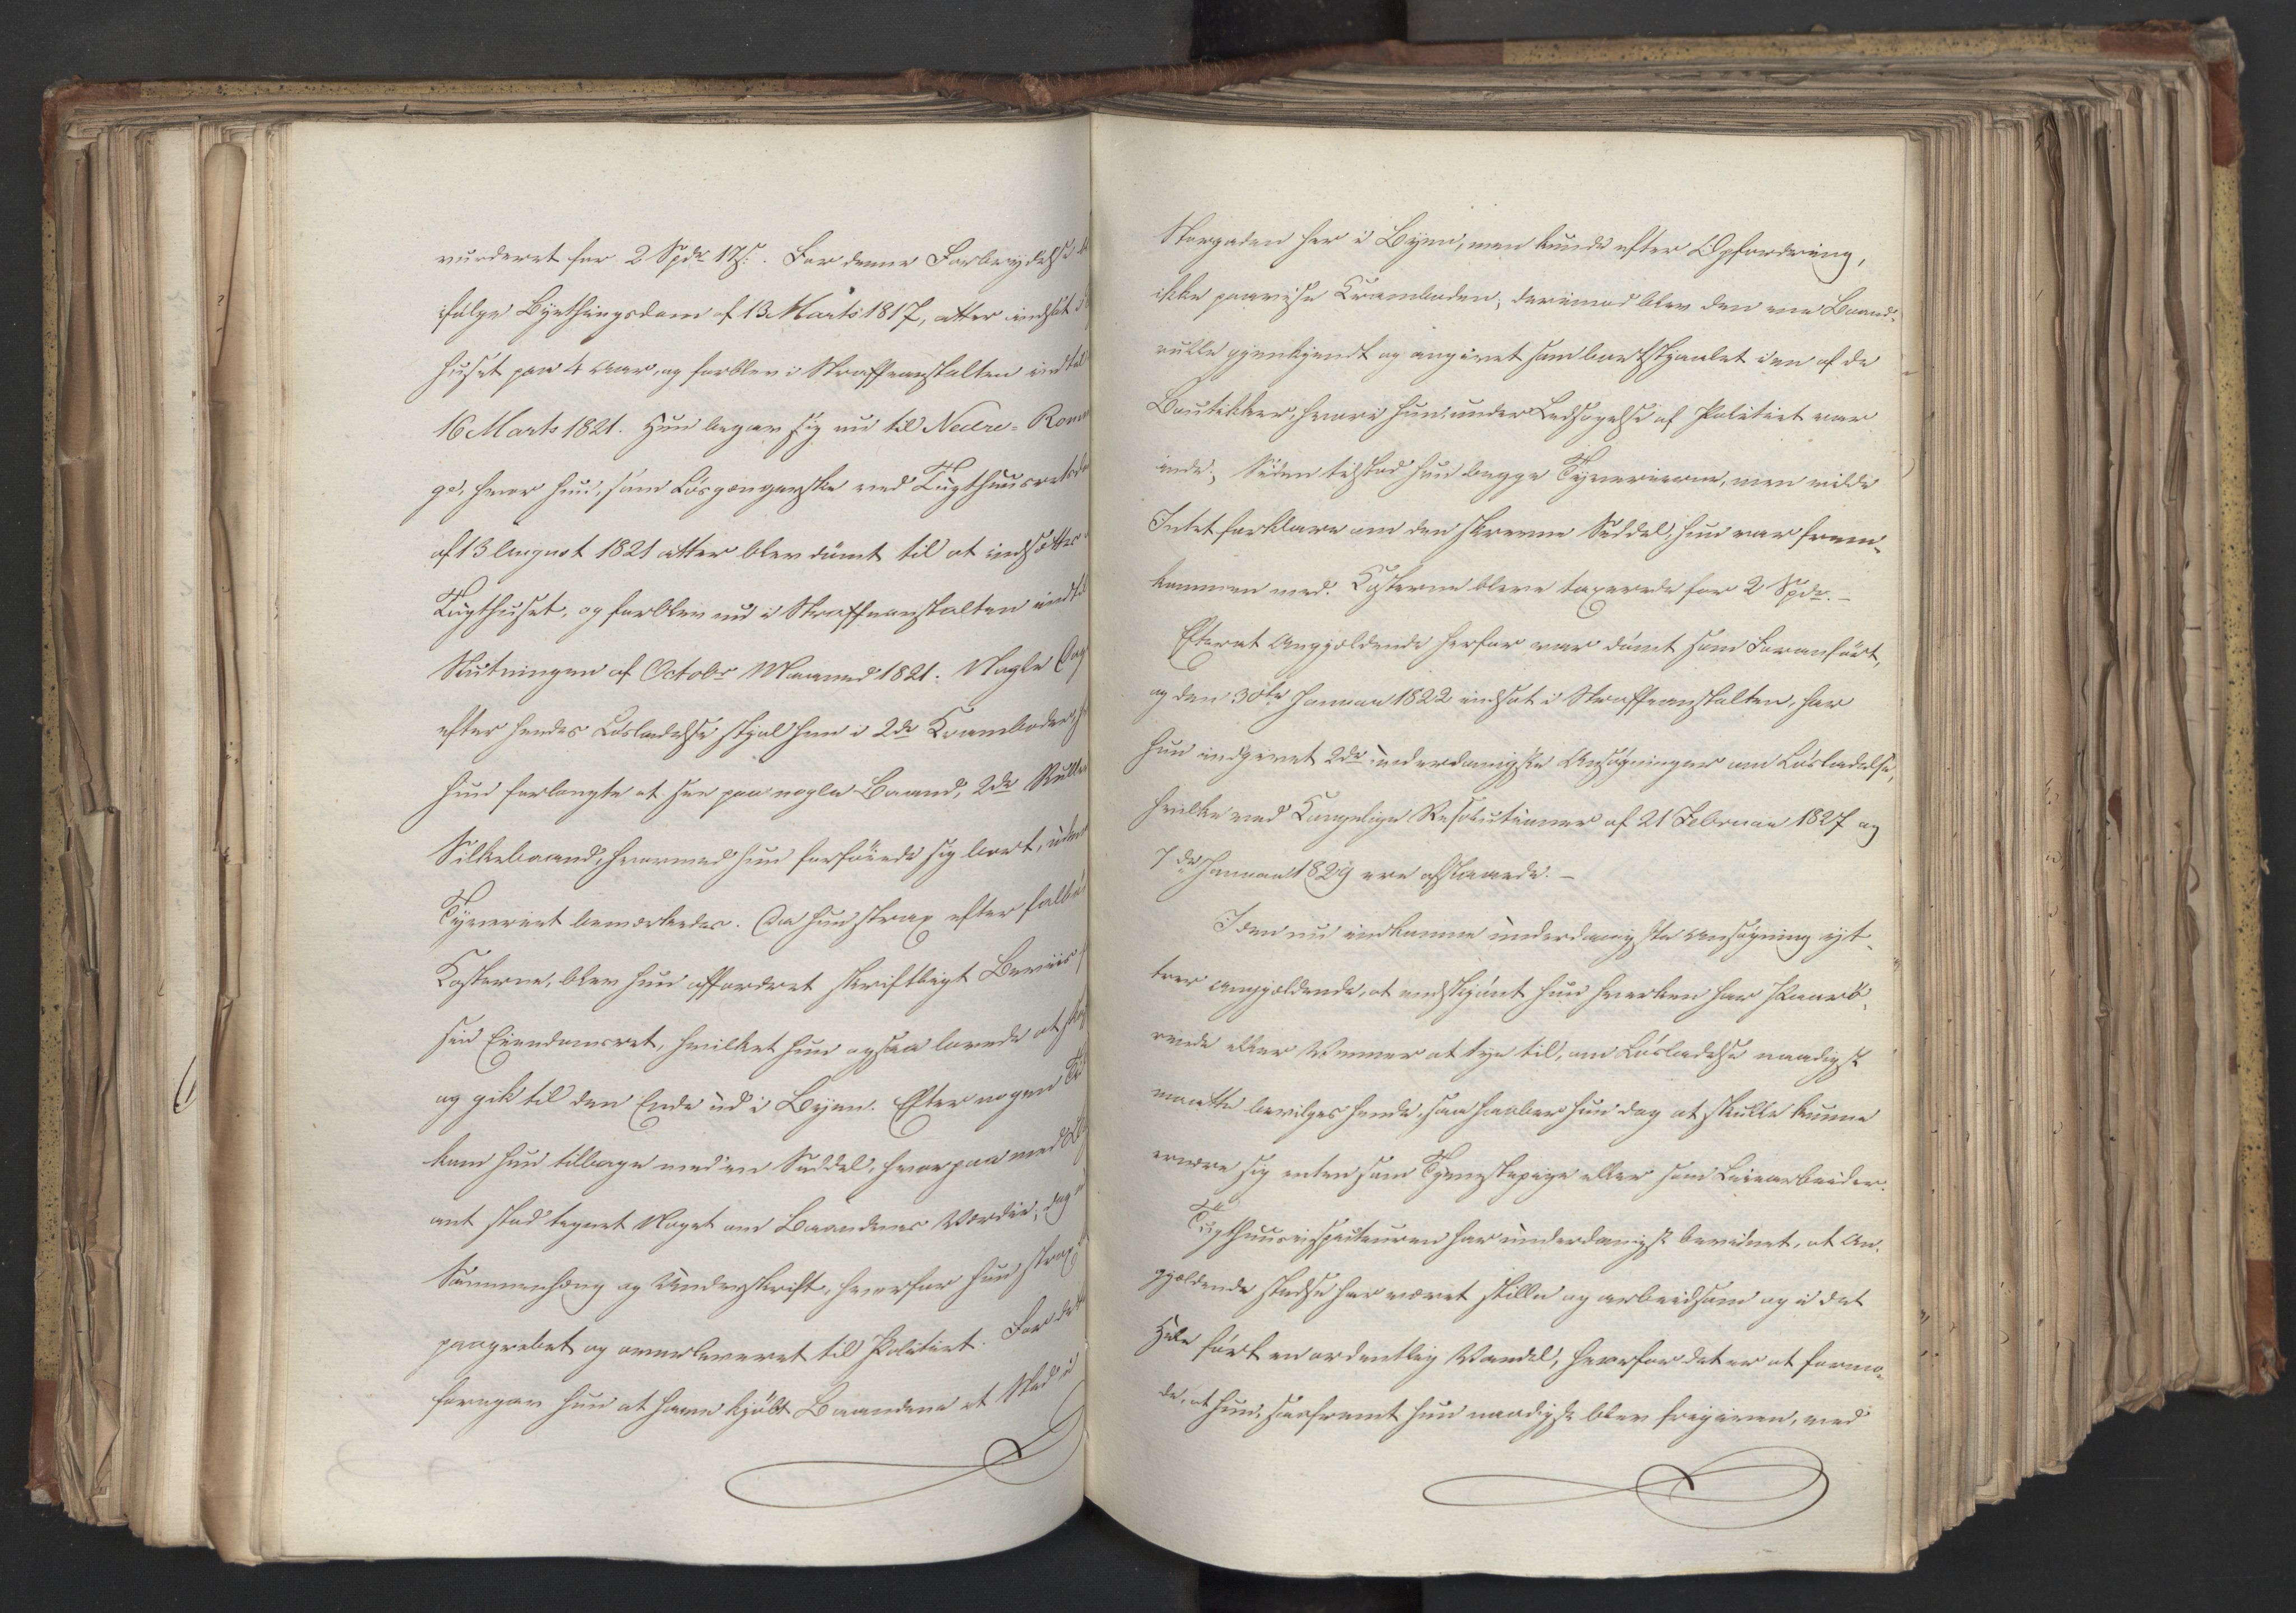 vurderet for 2 Spdr 17 s. For denne Forbrydelse
ifølge Byethingsdom af 13 Marts 1817, atter indsat i
huset paa 4 Aar, og forblev i Straffeanstalten indtil
16 Marts 1821. Hun begav sig nu til Nedre-Rome
ge, hvor hun, som Løsgængerske ved Tugthuusrets
af 13 August 1821 atter blev dømt til at indsættes
Tugthuset, og forblev nu i Straffeanstalten indtil
Slutningen af Octobr Maaned 1821. Nogle Dage
efter hendes Løsladelse stjal hun i 2de Kramboder,
hun forlangte at see paa nogle Baand, 2de Ruller
Silkebaand, hvormed hun forføiede sig bort, uden
Tyveriet bemærkedes. Da hun strax efter falbød
Kosterne, blev hun affordret skriftligt Beviis
sin Eiendomsret, hvilket hun ogsaa lovede at
og gik til den Ende ud i Byen. Efter nogen Tid
kom hun tilbage med en Seddel, hvorpaa med
ant stod tegnet Noget om Baandenes Værdie,
Sammenhæng og Underskrift, hvorfor hun strax
paagrebet og overleveret til Politiet. For dette
foregav hun at have kjøbt Baandene et Sted i
Storgaden her i Byen, men kunde efter Opfordring,
ikke paavise Kramboden; derimod blev den ene Baand-
rulle gjenkjendt og angivet som bortstjaalet i en af de
Boutikker, hvori hun under Ledsagelse af Politiet var
inde; Siden tilstod hun begge Tyverierne, men vilde
Intet forklare om den skrevne Seddel, hun var frem-
kommen med. Kosterne bleve taxerede for 2 Spdr. –
Efterat Angjældende herfor var dømt som Foranført,
og den 30te Januar 1822 indsat i Straffeanstalten, har
hun indgivet 2de underdanigste Ansøgninger om Løsladelse,
hvilke ved Kongelige Resolutioner af 21 Februar 1827 og
7de Januar 1829 ere afslaaede. –
I den nu indkomne underdanigste Ansøgning yt-
trer Angjældende, at endskjønt hun hverken har Paarø-
rende eller Venner at tye til, om Løsladelse naadigst
maatte bevilges hende, saa haaber hun dog at skulle kunne
ernære sig enten som Tjenestepige eller som Leiearbeider.
Tugthuusinspecteuren har underdanigst bevidnet, at An-
gjældende stedse har været stille og arbeidsom og i det
Hele ført en ordentlig Vandel, hvorfor det er at formo-
de, at hun, saafremt hun naadigst blev frigiven, ved